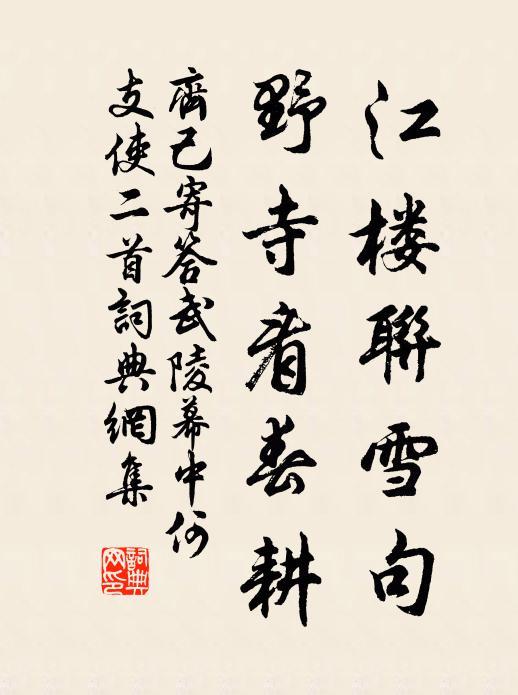 江楼聯雪句
野寺看春耕
齊己寄答武陵幕中何
支使二首詞典網集
詞典
网印